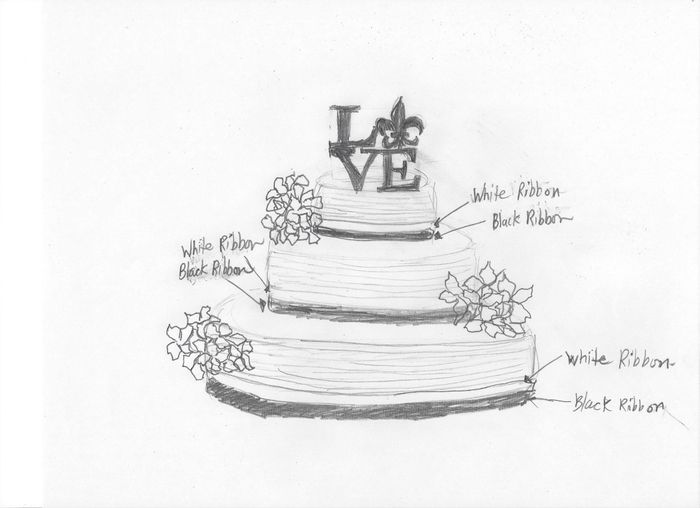 L
VE
White Ribbon
Black Ribbon
White Ribbon
Black Ribbon
White Ribbon
Black Ribbon